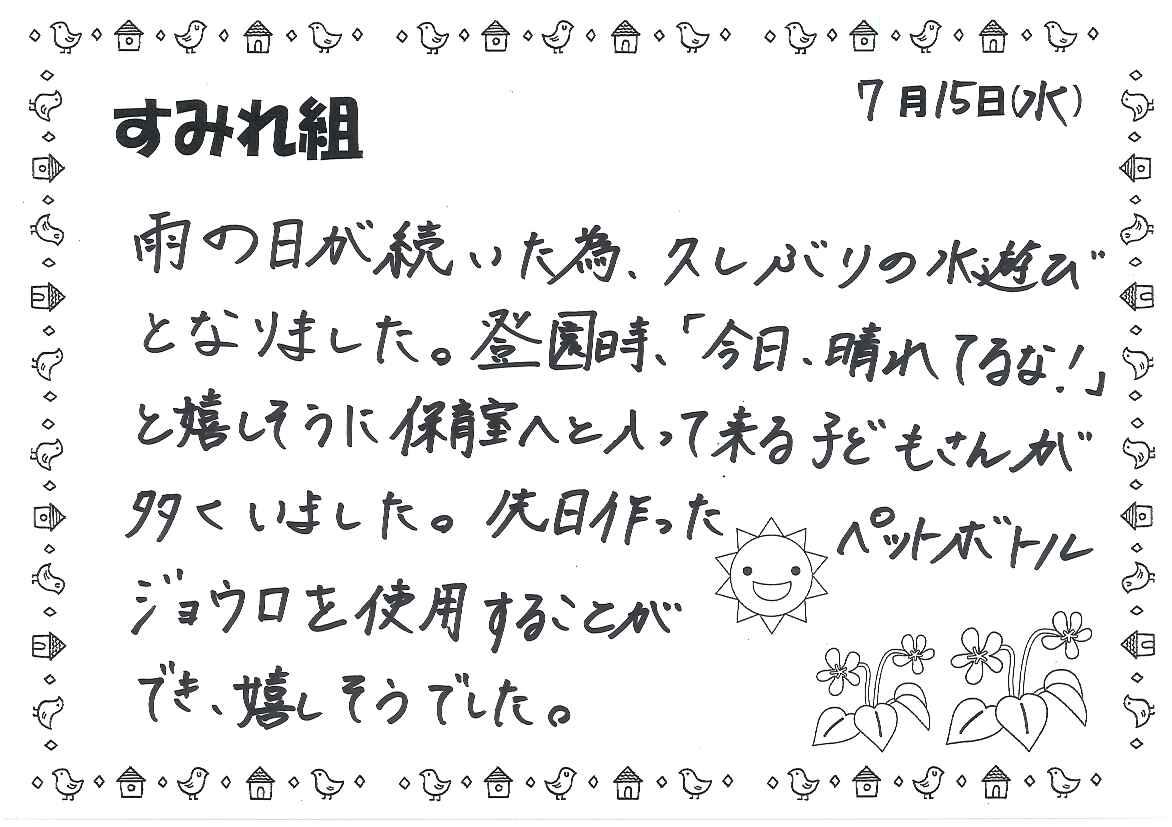 すみれ組
7月15日(水)
雨の日が続いた為、久しぶりの水遊び
となりました。登園時、「今日、晴れてるな!」
と嬉しそうに保育室へと入って来る子どもさんが
多くいました。先日作った ペットボトル
ジョウロを使用することが
でき、嬉しそうでした。